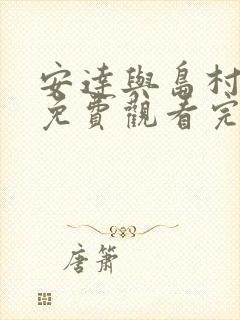 安達與島村
免費觀看完
唐簫